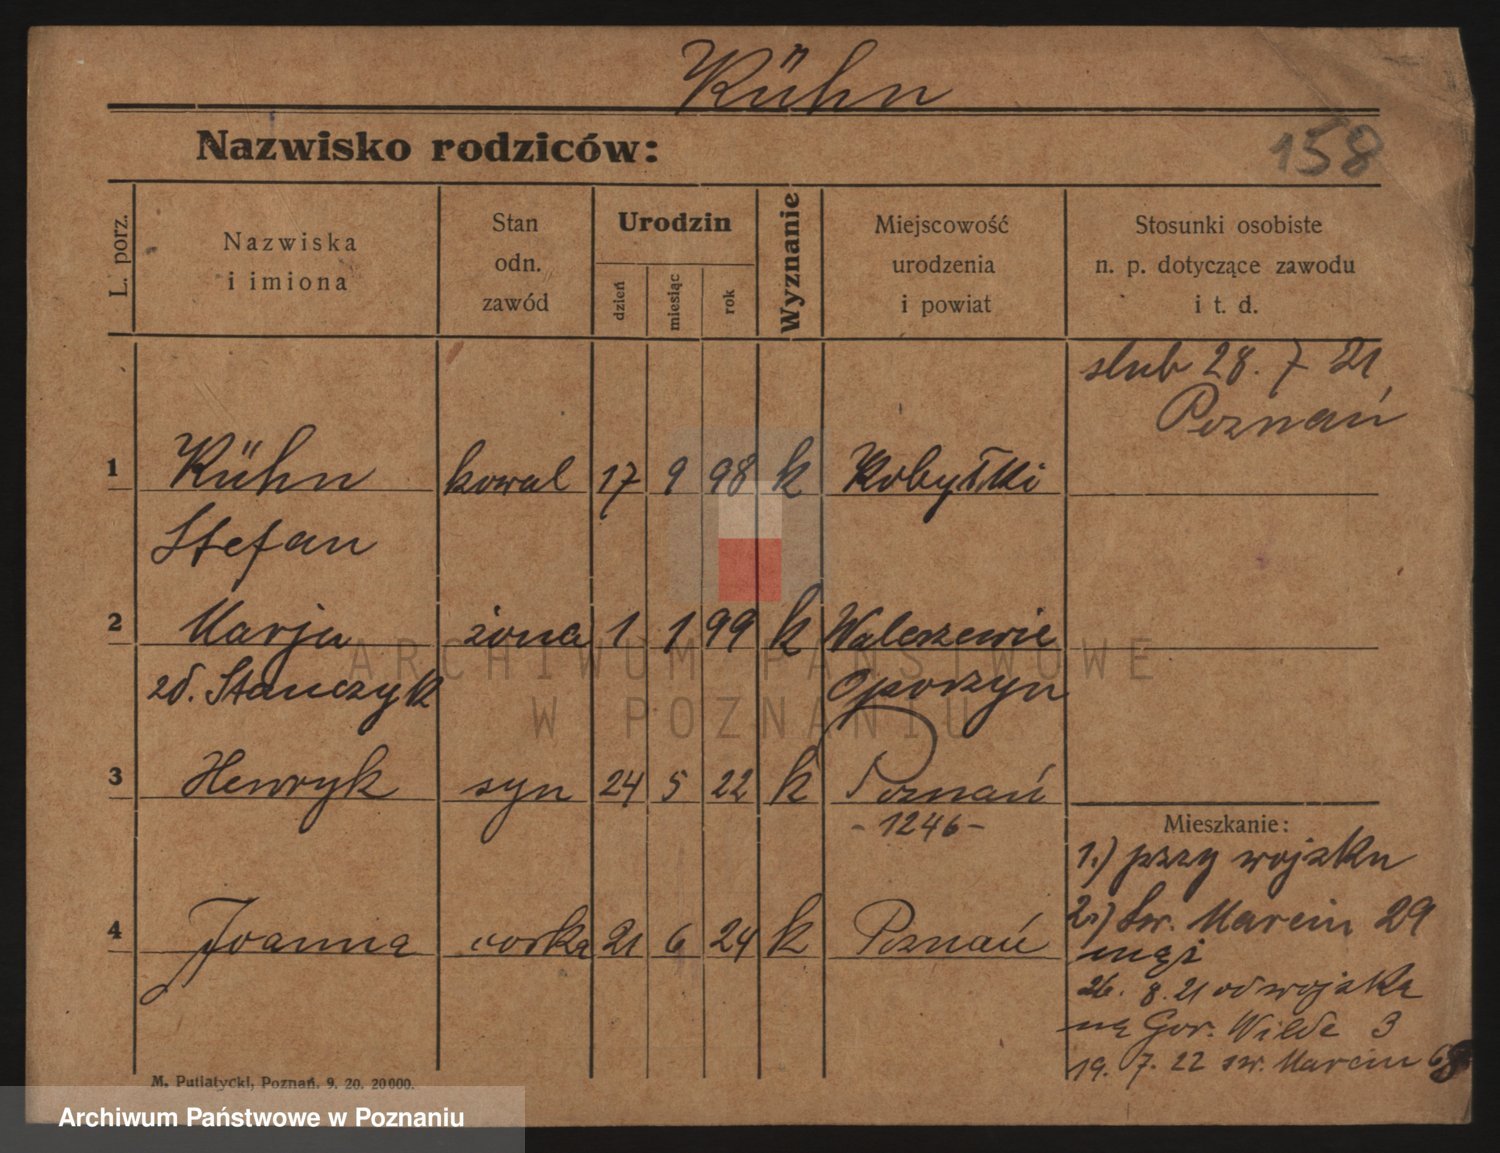 Kühn
Nazwisko rodziców:
158
L. porz.
Nazwiska
i imiona
Stan
odn.
zawód
Urodzin
dzień
miesiąc
rok
Wyznanie
Miejscowość
urodzenia
i powiat
Stosunki osobiste
n. p. dotyczące zawodu
i t. d.
slub 28. 7 21
Poznań
1 Kühn kowal 17 9 98 k Kobyłki
Stefan
2 Marja żona 1 1 99 k
zd. Stanczyk Oporzyn
3 Henryk syn 24 5 22 k Poznań
- 1246 -
Mieszkanie:
1.) przy wojsku
4 Joanna corka 21 6 24 k Poznań
2.) Św. Marcin 29
mąż
26. 8. 21 od wojska
na Gor. Wilde 3
19. 7. 22 sw. Marcin
M. Putiatycki, Poznań. 9. 20. 20000.
ARCHIWUM PAŃSTWOWE
W POZNANIU
Archiwum Państwowe w Poznaniu